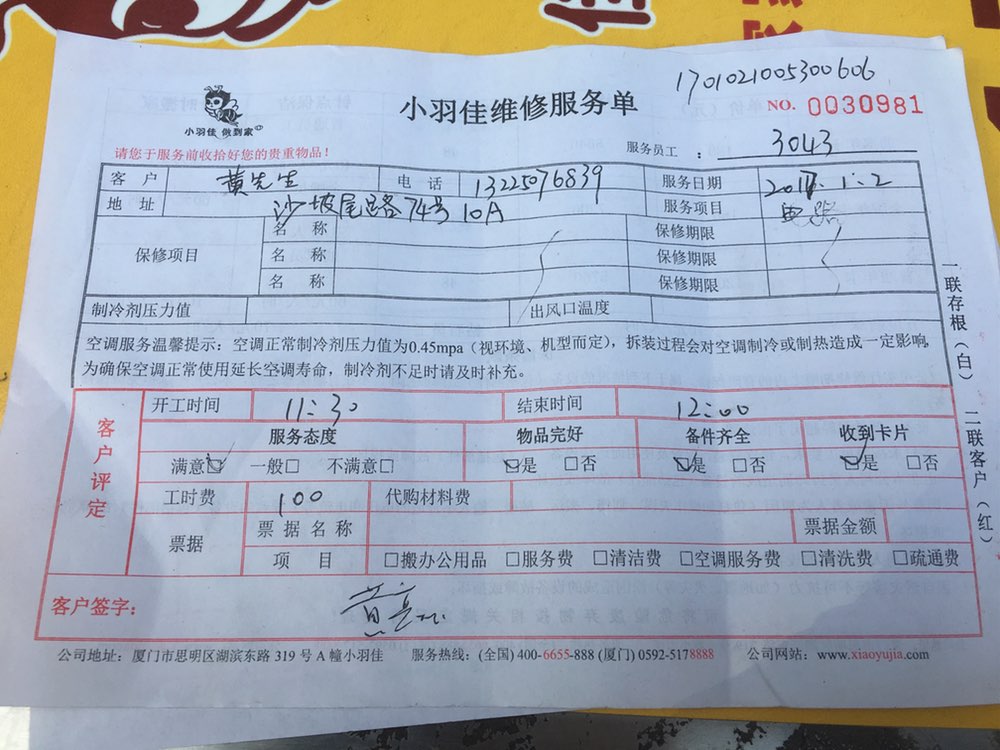 1701021005300606
小羽佳 做到家
小羽佳维修服务单
NO. 0030981
请您于服务前收拾好您的贵重物品！
服务员工：3043
客户 黄先生 电话 13225076839 服务日期 2017.1.2
地址 沙坡尾路74号10A 服务项目 电路
保修项目
名称 保修期限
名称 保修期限
名称 保修期限
制冷剂压力值 出风口温度
空调服务温馨提示：空调正常制冷剂压力值为0.45mpa（视环境、机型而定），拆装过程会对空调制冷或制热造成一定影响，
为确保空调正常使用延长空调寿命，制冷剂不足时请及时补充。
客户评定
开工时间 11:30 结束时间 12:00
服务态度 物品完好 备件齐全 收到卡片
满意☑ 一般□ 不满意□ ☑是 □否 ☑是 □否 ☑是 □否
工时费 100 代购材料费
票据 票据名称 票据金额
项目 □搬办公用品 □服务费 □清洁费 □空调服务费 □清洗费 □疏通费
客户签字：黄
公司地址：厦门市思明区湖滨东路 319 号 A 幢小羽佳 服务热线：(全国) 400-6655-888 (厦门) 0592-5178888 公司网站：www.xiaoyujia.com
一联存根（白） 二联客户（红）